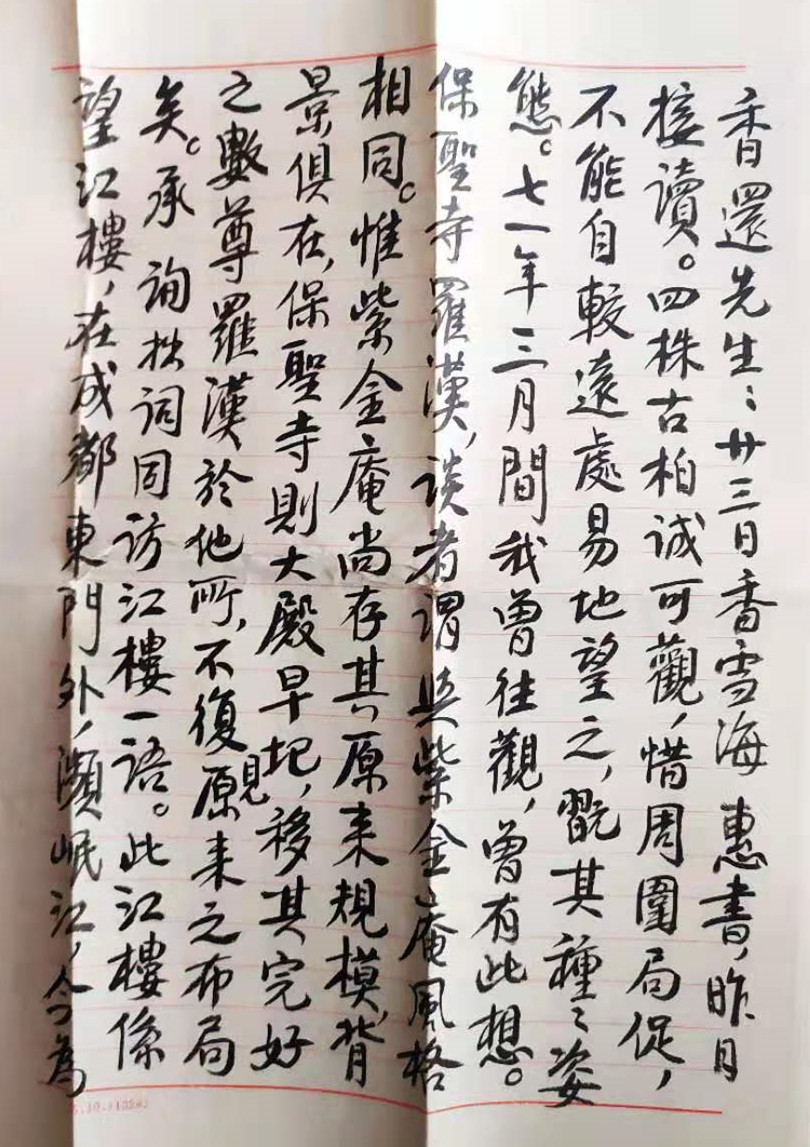 香還先生：廿三日香雪海 惠書，昨日
接讀。四株古柏誠可觀，惜周圍局促，
不能自較遠處易地望之，翫其種〻姿
態。七一年三月間我曾往觀，曾有此想。
保聖寺羅漢，談者謂與紫金庵風格
相同。惟紫金庵尚存其原来規模，背
景俱在，保聖寺則大殿早圮，移其完好
之數尊羅漢於他所，不復見原来之布局
矣。承 詢拙詞同訪江樓一語。此江樓係
望江樓，在成都東門外，瀕岷江，今為